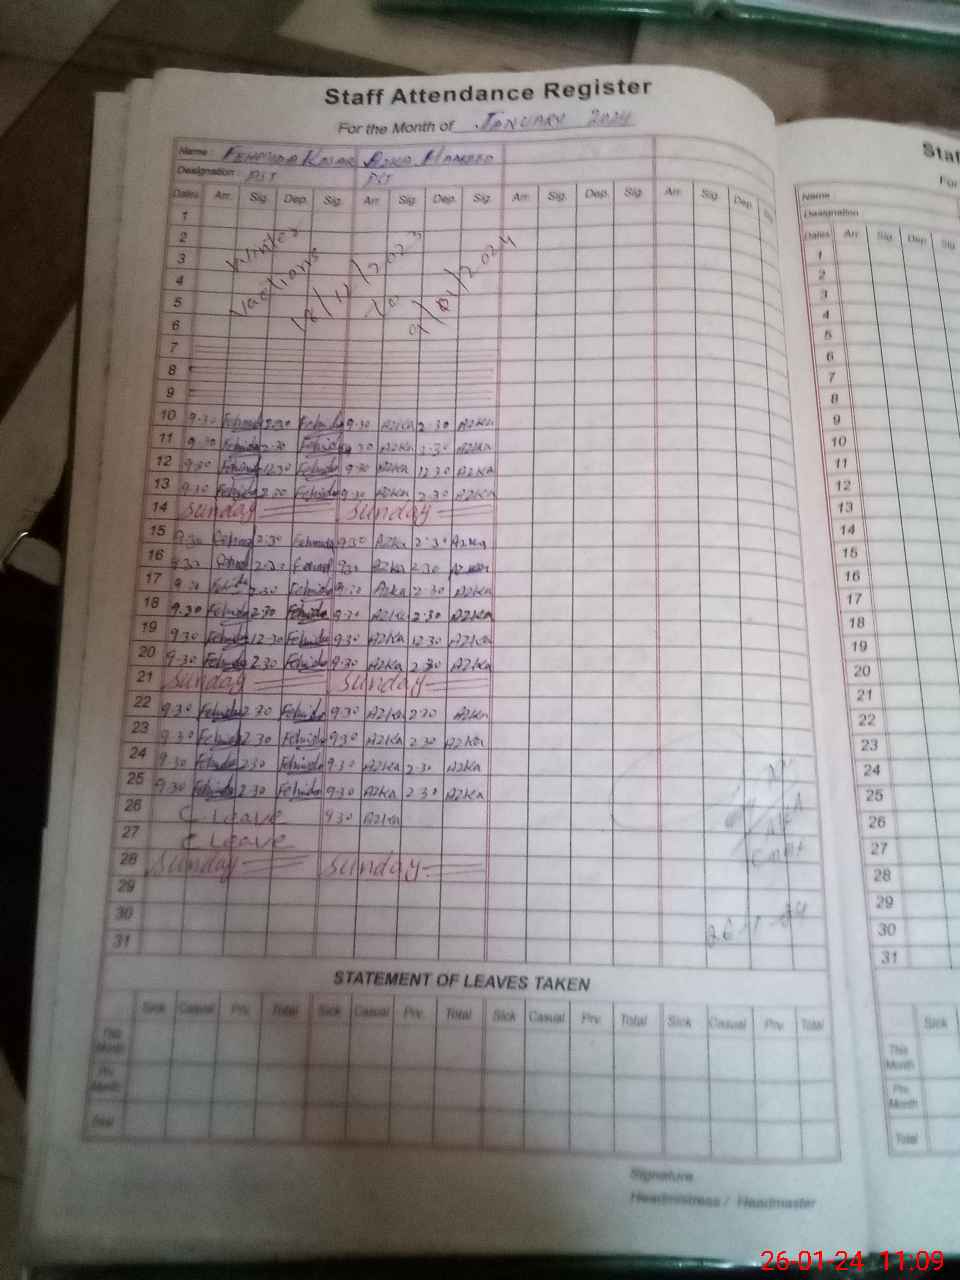 Staff Attendance Register
For the Month of JANUARY 2024
Name : FEHMIDA KOSAR AZKA HAMEED
Designation : PST PST
Dates Arr. Sig. Dep. Sig. Arr. Sig. Dep. Sig. Arr. Sig. Dep. Sig. Arr. Sig. Dep. Sig.
1
2 Winter
3
4 Vacations
5 To
6
7
8
9
10 9.30 Fehmida 2.30 Fehmida 9.30 Azka 2.30 Azka
11 9.30 Fehmida 2.30 Fehmida 9.30 Azka 2.30 Azka
12 9.30 Fehmida 12.30 Fehmida 9.30 Azka 12.30 Azka
13 9.30 Fehmida 2.30 Fehmida 9.30 Azka 2.30 Azka
14 Sunday Sunday
15 9.30 Fehmida 2.30 Fehmida 9.30 Azka 2.30 Azka
16 9.30 2.30 9.30 Azka 2.30 Azka
17 9.30 2.30 Fehmida 9.30 Azka 2.30 Azka
18 9.30 Fehmida 2.30 Fehmida 9.30 Azka 2.30 Azka
19 9.30 Fehmida 12.30 Fehmida 9.30 Azka 12.30 Azka
20 9.30 Fehmida 2.30 Fehmida 9.30 Azka 2.30 Azka
21 Sunday Sunday
22 9.30 Fehmida 2.30 Fehmida 9.30 Azka 2.30 Azka
23 9.30 Fehmida 2.30 Fehmida 9.30 Azka 2.30 Azka
24 9.30 Fehmida 2.30 Fehmida 9.30 Azka 2.30 Azka
25 9.30 Fehmida 2.30 Fehmida 9.30 Azka 2.30 Azka
26 C Leave 9.30 Azka
27 C Leave
28 Sunday Sunday
29
30 26-1-24
31
STATEMENT OF LEAVES TAKEN
Sick Casual Prv. Total Sick Casual Prv. Total Sick Casual Prv. Total Sick Casual Prv. Total
This Month
Prv. Month
Total
Signature
Headmistress / Headmaster
Name
Designation
Dates Arr. Sig. Dep. Sig.
1
2
3
4
5
6
7
8
9
10
11
12
13
14
15
16
17
18
19
20
21
22
23
24
25
26
27
28
29
30
31
Sick
This Month
Prv. Month
Total
26-01-24 11:09